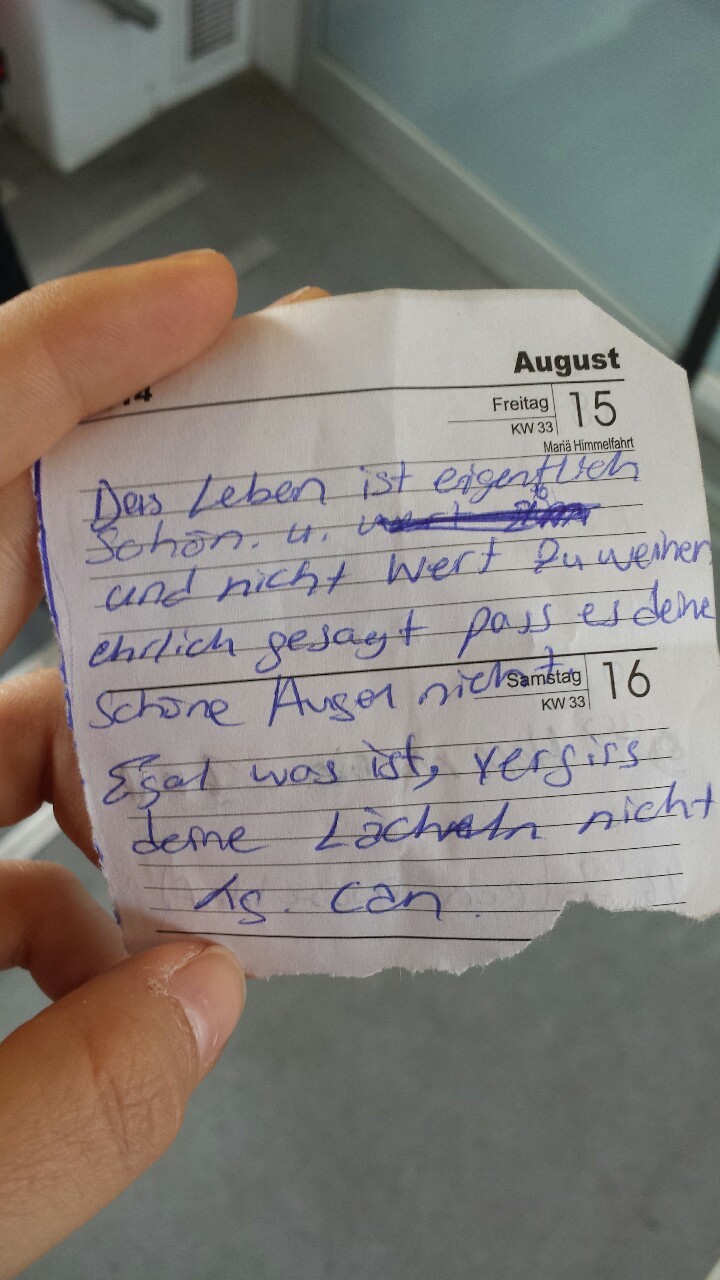 14 August
Freitag 15
KW 33
Mariä Himmelfahrt
Das Leben ist eigentlich
Schön. u.
und nicht Wert Zu weinen
ehrlich gesagt pass es deine
Schöne Augen nicht.
Samstag 16
KW 33
Egal was ist, vergiss
deine Lächeln nicht
Lg. Can.